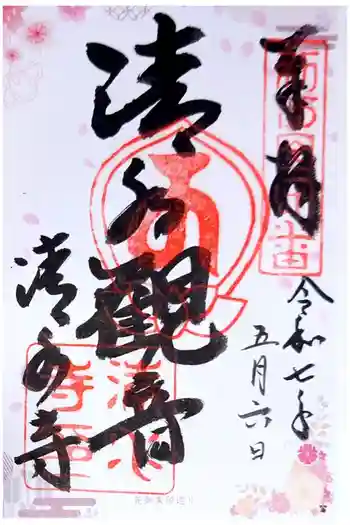 奉拝
令和七年
五月六日
清水観音
清水寺